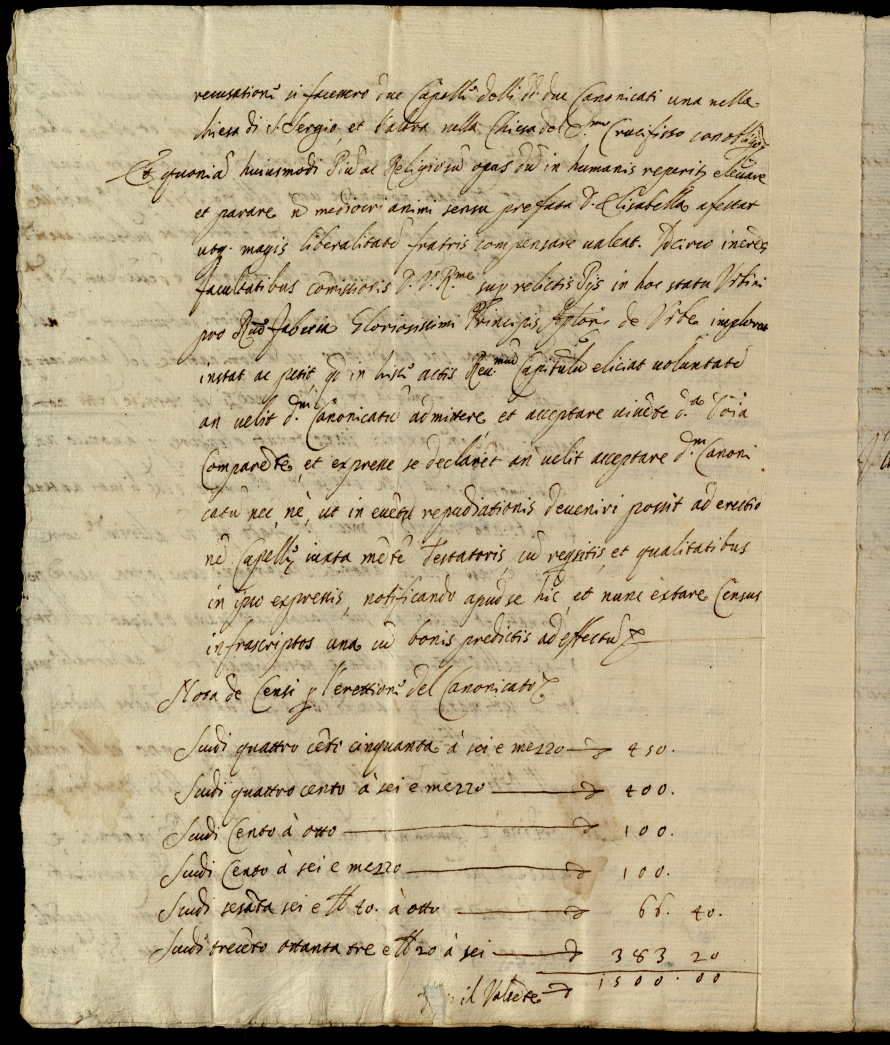 recusation: si facessero due Capell: delli d. due Canonicati una nella
Chiesa di S. Sergio, et l'altra nella Chiesa del S.mo Crucifisso con
Et quonia huiusmodi Piu ac Religiosu opus du in humanis reperit, elevare
et parare n mediocri animi sensu prefata D. Elisabella afectat
utq. magis liberalitate fratris compensare valeat. Idcirco
facultatibus comissioris D. V. R.me sup relictis Pijs in hoc statu Urbini
pro Rnda fabrica Gloriosissimi Principis Aplor. de Urbe
instat ac petit, q in his actis Reu.mum Capitulu eliciat voluntate
an velit d.m Canonicatu admittere et acceptare vivete d.a
Comparete, et expresse se declaret an velit acceptare d.m Canoni
catu nec, ne, ut in evetu repudiationis deveniri possit ad erectio
ne Capell. iuxta mete Testatoris, cu reqsitis, et qualitatibus
in ipso expressis, notificando apud se hic, et nunc extare Census
infrascriptos una cu bonis predictis ad effectu
Nota de Censi p l'erettion: del Canonicato
Scudi quattro ceti cinquanta à sei e mezzo 450.
Scudi quattro cento à sei e mezzo 400.
Scudi Cento à otto 100.
Scudi Cento à sei e mezzo 100.
Scudi sesata sei e 40. à otto 66. 40.
Scudi treceto ottanta tre e 20 à sei 383 20
1500.00